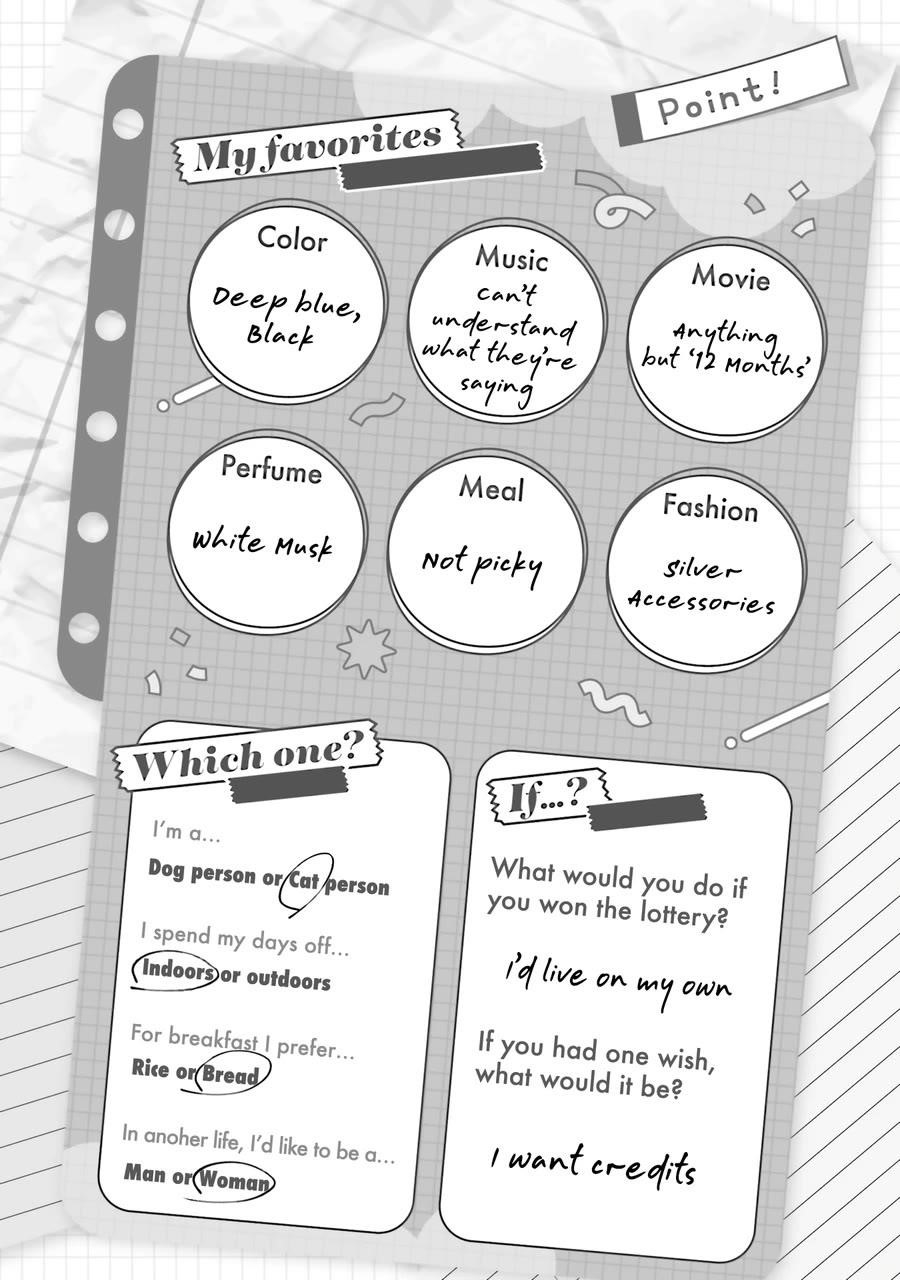 Point!
My favorites
Color
Deep blue,
Black
Music
can't
understand
what they're
saying
Movie
Anything
but '12 Months'
Perfume
White Musk
Meal
Not picky
Fashion
Silver
Accessories
Which one?
I'm a...
Dog person or Cat person
I spend my days off...
Indoors or outdoors
For breakfast I prefer...
Rice or Bread
In anoher life, I'd like to be a...
Man or Woman
If...?
What would you do if
you won the lottery?
i'd live on my own
If you had one wish,
what would it be?
I want credits